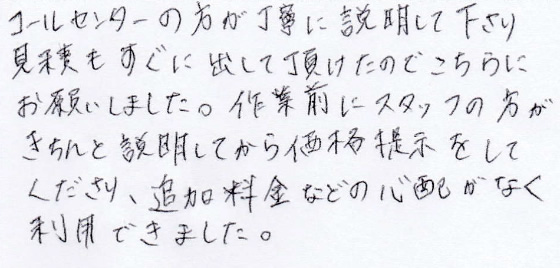 コールセンターの方が丁寧に説明して下さり
見積もすぐに出して頂けたのでこちらに
お願いしました。作業前にスタッフの方が
きちんと説明してから価格提示をして
くださり、追加料金などの心配がなく
利用できました。